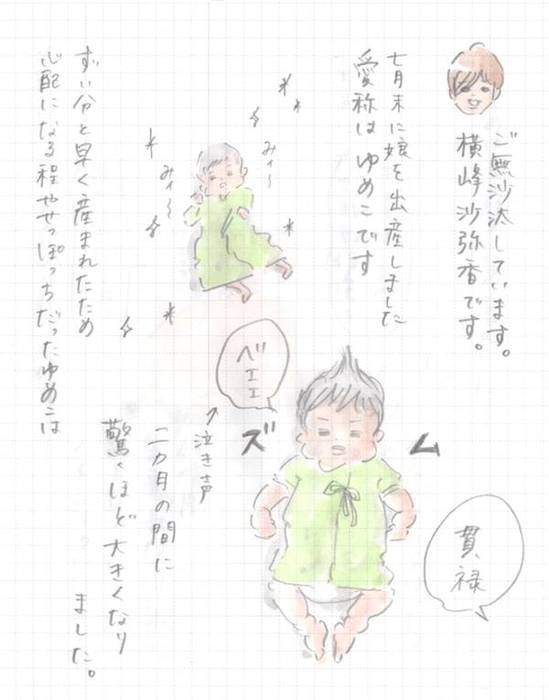 ご無沙汰しています。
横峰沙弥香です。
七月末に娘を出産しました
愛称はゆめこです
みィ〜
みィ〜
ずい分と早く産まれたため
心配になる程やせっぽっちだったゆめこは
ベェェ
↑泣き声
ズ
ム
貫禄
二カ月の間に
驚くほど大きくなり
ました。